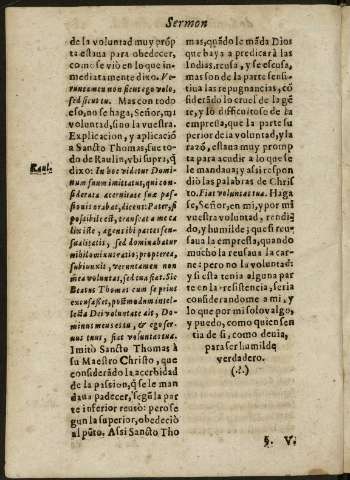 Sermon
de la voluntad muy prõp
ta estaua para obedecer,
como se viò en lo que in-
mediatamente dixo. Ve-
runtamen non sicut ego volo,
sed sicut tu. Mas con todo
esso, no se haga, Señor, mi
voluntad, sino la vuestra.
Explicacion, y aplicaciõ
a Sancto Thomas, fue to-
do de Raulin, vbi supra, q̃
Raul.
dixo: In hoc videtur Domi-
num suum imittatus, qui con-
siderata acerbitate suæ pas-
sionis orabat, dicens: Pater, si
possibile est, transeat a me ca
lix iste, agens ibi partes sen-
sualitatis, sed dominabatur
nihilominus ratio; propterea,
subiunxit, veruntamen non
mea voluntas, sed tua fiat. Sic
Beatus Thomas cum se prius
excusasset, postmodum intel-
lecta Dei voluntate ait, Do-
minus meus es tu, & ego ser-
uus tuus, fiat voluntas tua.
Imitò Sancto Thomas à
su Maestro Christo, que
considerãdo la acerbidad
de la passion, q̃ se le man
daua padecer, segũ la par
te inferior reusò: pero se
gun la superior, obedeciò
al pũto. Assi Sancto Tho
mas, quãdo le mãda Dios
que baya a predicar à las
Indias, reusa, y se escusa,
mas son de la parte sensi-
tiua las repugnancias, cõ
siderãdo lo cruel de la gẽ
te, y lo dificultoso de la
empresa, que la parte su
perior de la voluntad, y la
razõ, estaua muy promp
ta para acudir a lo que se
le mandaua; y assi respon
diò las palabras de Chris
to. Fiat voluntas tua. Haga
se, Señor, en mi, y por mi
vuestra voluntad, rendi-
do, y humilde; que si reu-
saua la empresa, quando
mucho la reusaua la car-
ne: pero no la voluntad:
y si esta tenia alguna par
te en la resistencia, seria
considerandome a mi, y
lo que por mi solo valgo,
y puedo, como quien sen
tia de si, como deuia,
para ser humilde
verdadero.
(.?.)
§. V.